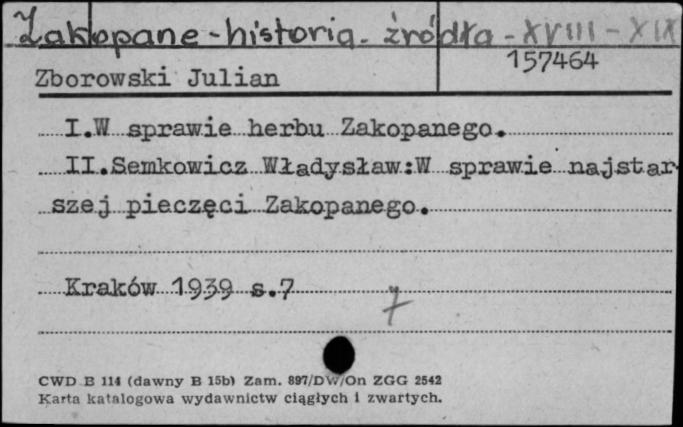 Zakopane - historia - źródła - XVIII - XIX
157464
Zborowski Julian
I.W sprawie herbu Zakopanego.
II.Semkowicz Władysław:W sprawie najstar-
szej pieczęci Zakopanego.
Kraków 1939 s.7
7
CWD B 114 (dawny B 15b) Zam. 897/DW/On ZGG 2542
Karta katalogowa wydawnictw ciągłych i zwartych.